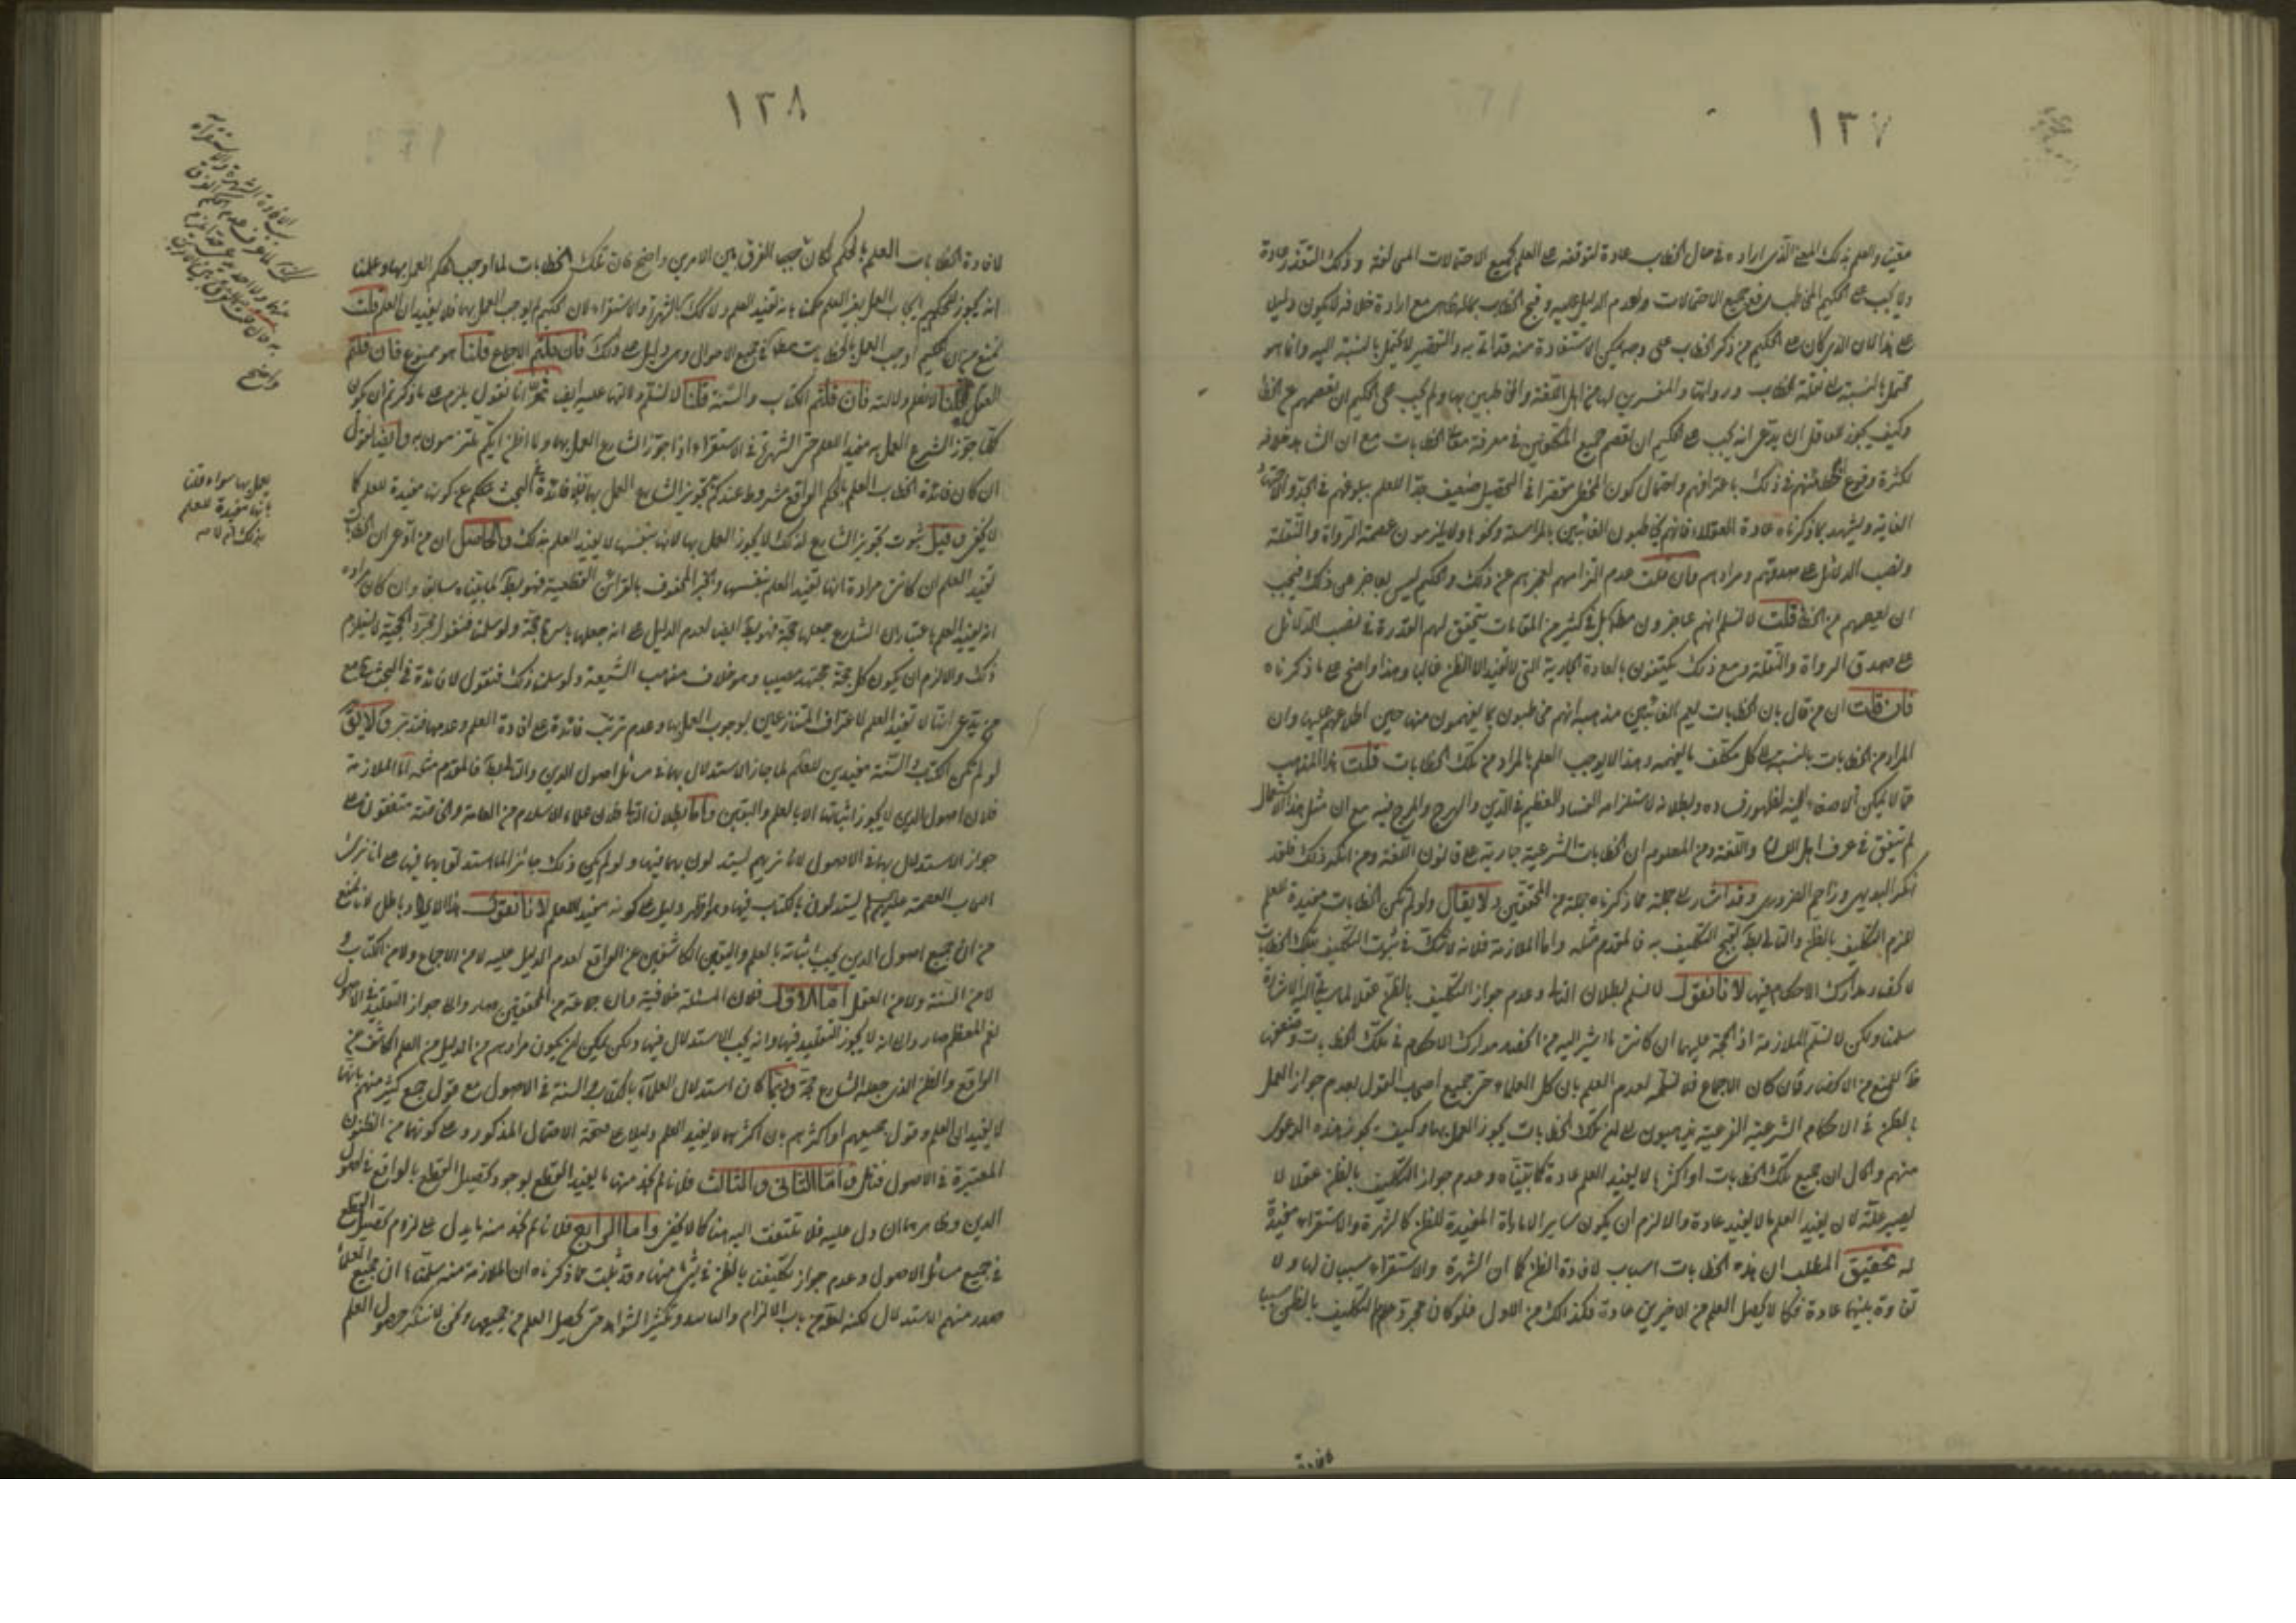 ١٣٧
معينا والعلم بذلك المعنى الذى اراده فى حال الخطاب عادة لتوقفه على العلم بجميع الاحتمالات المخالفة وذلك التعذر عادة
ولا يجب على الحكيم المخاطب رفع جميع الاحتمالات ولعدم الدليل عليه وقبح الخطاب بماله ظاهر مع ارادة خلافه لا يكون دليلا
على هذا لان الذى كان على الحكيم من ذكر الخطاب على وجه يمكن الاستفادة منه قد اتى به والتقصير لا يحتمل بالنسبة اليه وانما هو
محتمل بالنسبة الى نقلة الخطاب ورواتها والمفسرين لها من اهل اللغة والمخاطبين بها ولم يجب على الحكيم ان يعصمهم عن الخطا
وكيف يجوز لعاقل ان يدعى انه يجب على الحكيم ان يعصم جميع المكلفين فى معرفة معانى الخطابات مع ان الشاهد خلافه
لكثرة وقوع الخطا منهم فى ذلك باعترافهم واحتمال كون المخطى مقصرا فى التحصيل ضعيف جدا للعلم ببلوغهم فى الجد والاجتهاد
الغاية ويشهد بما ذكرناه عادة العقلاء فانهم يخاطبون الغائبين بالمراسلة ونحوها ولا يلزمون عصمة الرواة والنقلة
ونصب الدلائل على صدقهم ومرادهم فان قلت عدم التزامهم لعجزهم عن ذلك والحكيم ليس بعاجز عن ذلك فيجب
ان يعصمهم من الخطا قلت لا نسلم انهم عاجزون مطلقا بل فى كثير من المقامات يتحقق لهم القدرة فى نصب الدلائل
على صدق الرواة والنقلة ومع ذلك يكتفون بالعادة الجارية التى لا تفيد الا الظن غالبا وهذا واضح على ما ذكرناه
فان قلت ان من قال بان الخطابات يعم الغائبين مذهبه انهم مخاطبون بما يفهمون منها حين اطلاعهم عليها وان
المراد من الخطابات بالنسبة الى كل مكلف ما يفهمه وهذا لا يوجب العلم بالمراد من تلك الخطابات قلت هذا المذهب
مما لا يمكن الاصغاء اليه لظهور فساده وبطلانه لاستلزامه الفساد العظيم فى الدين والهرج والمرج فيه مع ان مثل هذا الاستعمال
لم يتفق فى عرف اهل اللسان واللغة ومن المعلوم ان الخطابات الشرعية جارية على قانون اللغة ومن انكر ذلك فلقد
انكر البديهى وزاحم الضرورى وقد اشار الى جملة مما ذكرناه جملة من المحققين ولا يقال ولو لم تكن الخطابات مفيدة للعلم
للزم التكليف بالظن والتالى بط لقبح التكليف به فالمقدم مثله واما الملازمة فلانه لا شك فى ثبوت التكليف بتلك الخطابات
لانحصار مدارك الاحكام فيها لانا نقول لا نسلم بطلان التالى وعدم جواز التكليف بالظن عقلا لما سياتى اليه الاشارة
سلمنا ولكن لا نسلم الملازمة اذ الحجة عليها ان كانت ما اشير اليه من انحصار مدارك الاحكام فى تلك الخطابات وضعفها
ظ للمنع من الانحصار وان كان الاجماع فلا نسلمه لعدم العلم بان كل العلماء حتى جميع اصحاب القول بعدم جواز العمل
بالظن فى الاحكام الشرعية الفرعية يذهبون الى ان تلك الخطابات يجوز العمل بها وكيف يجوز هذه الدعوى
منهم والحال ان جميع تلك الخطابات او اكثرها لا يفيد العلم عادة كما بيناه وعدم جواز التكليف بالظن عقلا لا
يصير علة لان يفيد العلم ما لا يفيد عادة والا لزم ان يكون ساير الامارات المفيدة للظن كالشهرة والاستقراء مفيدة
له تحقيق المطلب ان هذه الخطابات اسباب لافادة الظن كما ان الشهرة والاستقراء سببان لها ولا
تفاوة بينهما عادة فكما لا يحصل العلم من الاخيرين عادة فكذلك من الاول فلو كان مجرد عدم التكليف بالظن سببا
لافادة
١٣٨
لافادة الخطابات العلم بالحكم لكان حجب الفرق بين الامرين واضح فان تلك الخطابات لما اوجب الحكم العمل بها وعلمنا
انه يجوز للحكيم ايجاب العمل بغير العلم حكمنا بانه تفيد العلم ولا كك الشهرة والاستقراء لان الحكيم لم يوجب العمل بهما فلا يفيدان العلم قلت
نمنع من ان الحكيم اوجب العمل بالخطابات مطلقا فى جميع الاحوال وما الدليل على ذلك فان قلتم الاجماع قلنا هو ممنوع فان قلتم
العقل قلنا لا نعلم دلالته فان قلتم الكتاب والسنة قلنا لا نسلم دلالتها عليه ايضا ثم انا نقول يلزم على ما ذكرتم ان يكون
كلما جوز الشرع العمل به مفيدا للعلم حتى الشهرة والاستقراء اذا جوز الشارع العمل بهما ولا اظن انكم ملتزمون به وايضا نقول
ان كان فائدة الخطاب العلم بالحكم الواقع مشروط عندكم بتجويز الشارع العمل بها فلا فائدة فى البحث عنكم على كونها مفيدة للعلم كما
لا يخفى وقيل ثبوت تجويز الشارع لذلك لا يجوز العمل بها لانها بنفسها لا يفيد العلم بذلك والحاصل ان من ادعى ان الخطابات
تفيد العلم ان كانت مرادة انها تفيد العلم بنفسها والخبر المحفوف بالقرائن القطعية فهو بط لما بيناه سابقا وان كان مراده
انه يفيد العلم باعتبار ان الشارع جعلها حجة فهو بط ايضا لعدم الدليل على انه جعلها باسرها حجة ولو سلمنا فنقول مجرد الحجية لا يستلزم
ذلك والا لزم ان يكون كل حجة مجتهد مصيبا وهو خلاف مذهب الشيعة ولو سلمنا ذلك فنقول لا فائدة فى البحث مع
من يدعى انها لا تفيد العلم لاعتراف المتنازعين بوجوب العمل بها وعدم ترتب فائدة على افادة العلم وعدمها فتدبر ولا يقال
لو لم تكن الكتاب والسنة مفيدين للعلم لما جاز الاستدلال بهما فى مسائل اصول الدين والتالى بط فالمقدم مثله اما الملازمة
فلان اصول الدين لا يجوز اثباتها الا بالعلم واليقين واما بطلان التالى فلان علماء الاسلام من العامة والخاصة متفقون على
جواز الاستدلال بهما فى الاصول لانا نريهم يستدلون بهما فيها ولو لم يكن ذلك جائزا لما استدلوا بهما فيها على انا نرى
اصحاب العصمة عليهم السلام يستدلون بالكتاب فيها وهو اظهر دليل على كونه مفيد للعلم لانا نقول هذا الايراد باطل لانا نمنع
من ان جميع اصول الدين يجب اثباته بالعلم واليقين الكاشفين عن الواقع لعدم الدليل عليه لا من الاجماع ولا من الكتاب و
لا من السنة ولا من العقل اما الاول فلان المسئلة خلافية وان جماعة من المحققين صاروا الى جواز التقليد فى الاصول
نعم المعظم صاروا الى انه لا يجوز التقليد فيها وانه يجب الاستدلال فيها ولكن يمكن ان يكون مرادهم من الدليل من العلم الكاشف عن
الواقع والظن الذى جعله الشارع حجة وربما كان استدلال العلماء بالكتاب والسنة فى الاصول مع قول جمع كثير منهم بانها
لا يفيدان العلم وقول جميعهم او اكثرهم بان اكثرها لا يفيد العلم دليلا على صحة الاحتمال المذكور وعلى كونهما من الظنون
المعتبرة فى الاصول فتامل واما الثانى والثالث فلانا لم نجد منهما ما يفيد القطع بوجوب تحصيل القطع بالواقع فى اصول
الدين وظاهرهما ان دل عليه فلا يلتفت اليه هنا كما لا يخفى واما الرابع فلانا لم نجد منه ما يدل على لزوم تحصيل القطع
فى جميع مسائل الاصول وعدم جواز تكليفنا بالظن فى شىء منها وقد ثبت مما ذكرناه ان الملازمة منه سلمنا ان جميع العلماء
صدر منهم الاستدلال لكنه لعله من باب الالزام والتاسيد وتكثير الشواهد حتى يحصل العلم من جميعها ونحن لا ننكر حصول العلم
يعمل بها سواء قلنا
بانها مفيدة للعلم
بذلك ام لا صه